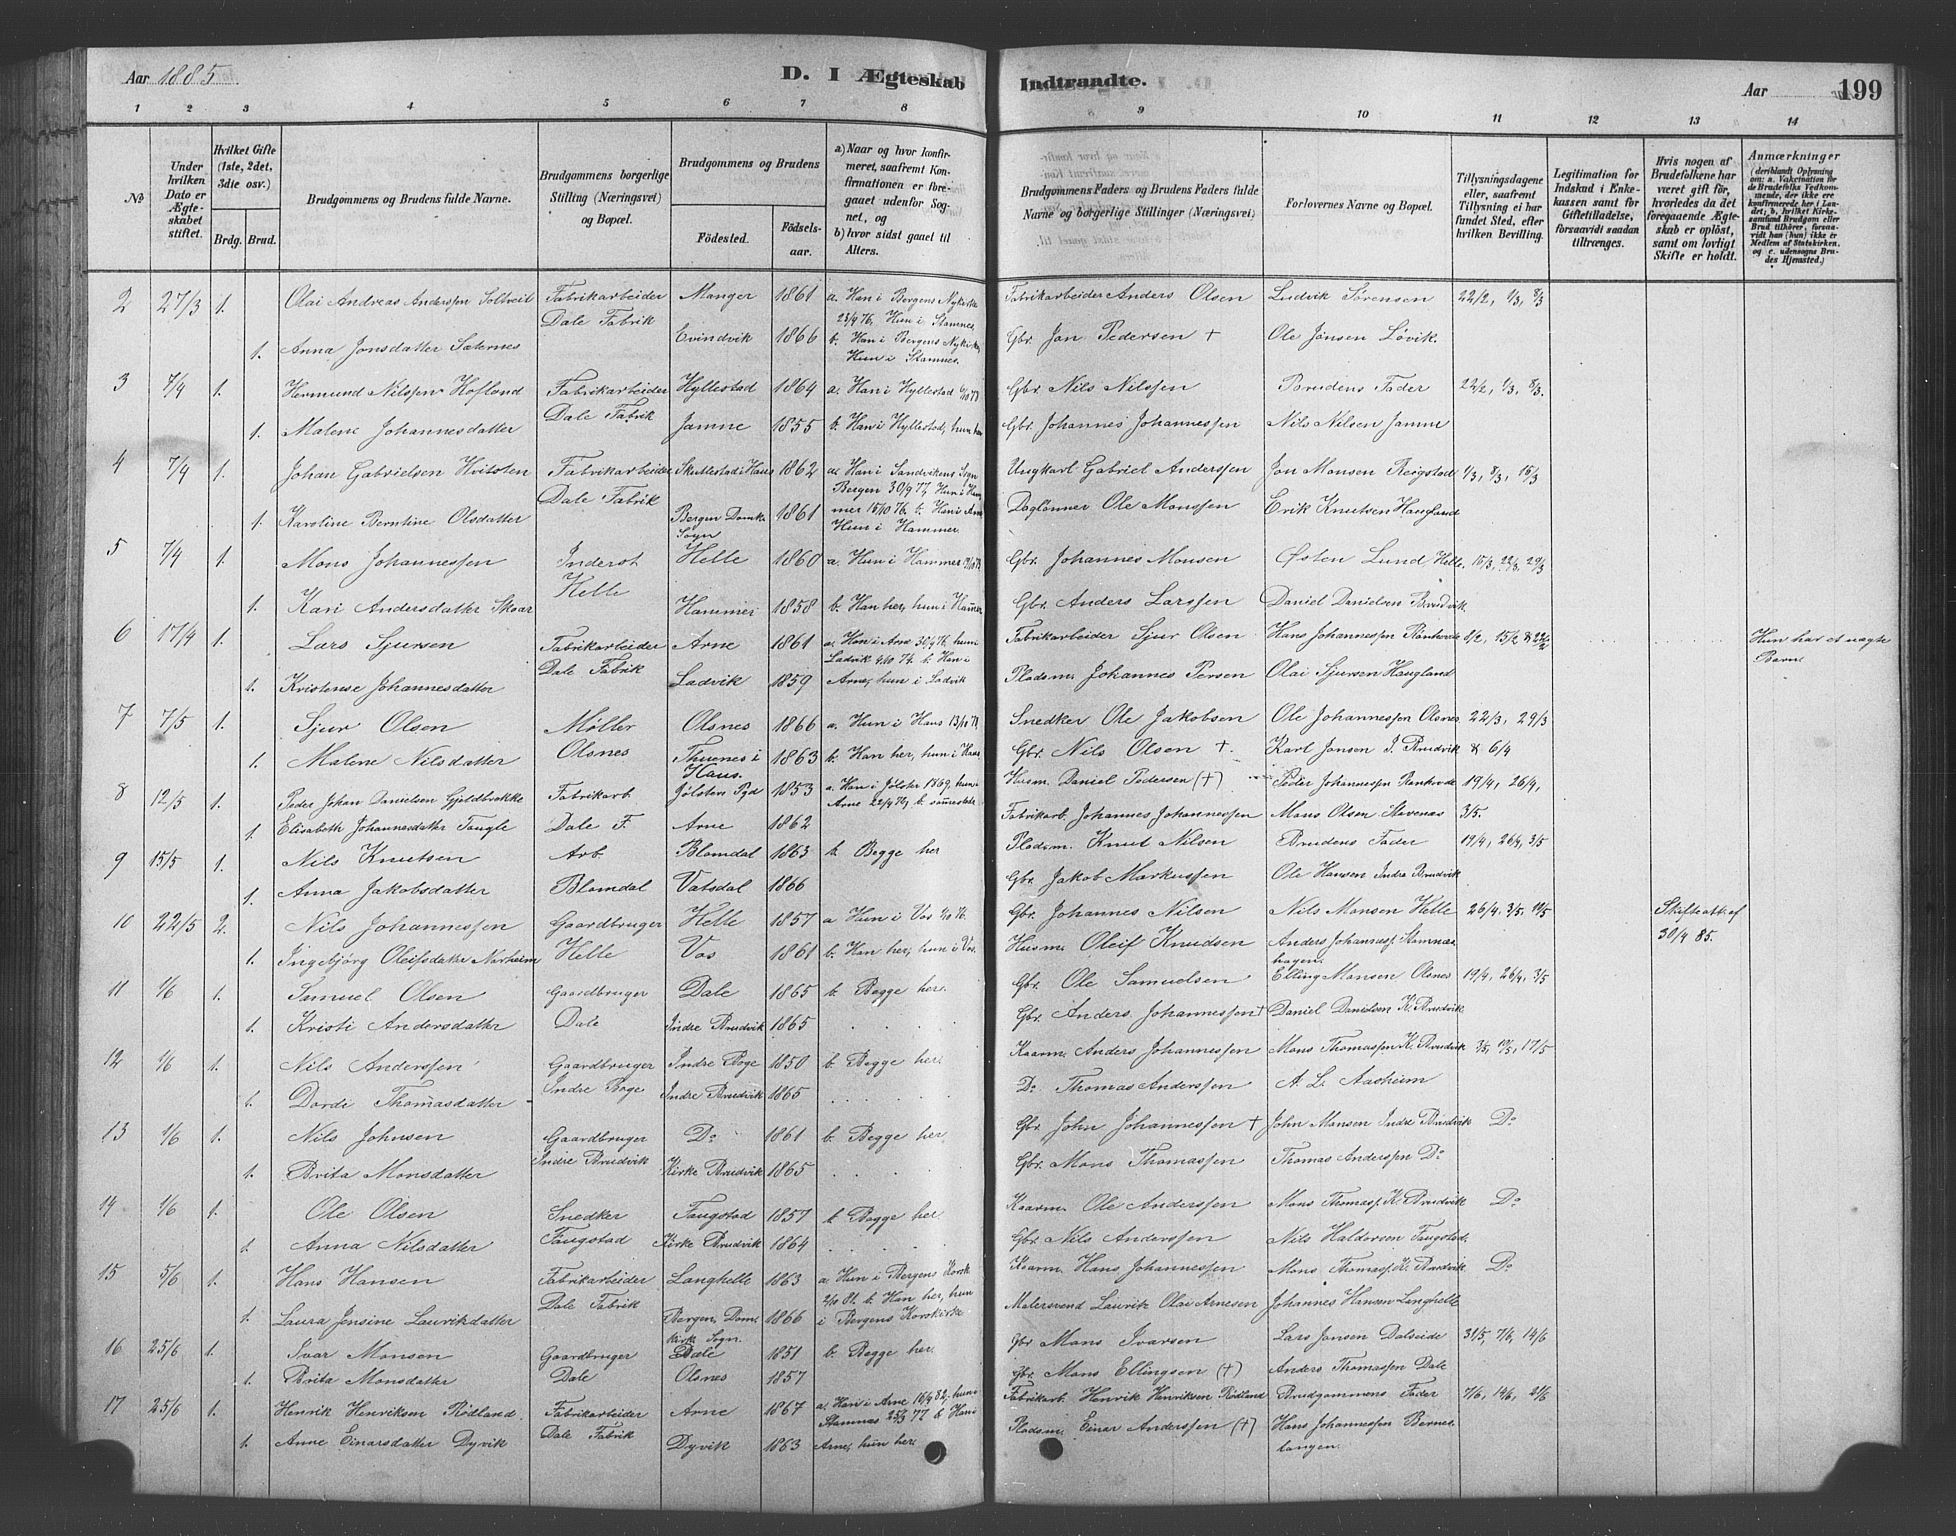 Aar 1885
D. I Ægteskab Indtraadte.
Aar
199
1 2 3 4 5 6 7 8 9 10 11 12 13 14
No
Under hvilken Dato er Ægteskabet stiftet.
Hvilket Gifte (1ste, 2det, 3die osv.)
Brdg. Brud.
Brudgommens og Brudens fulde Navne.
Brudgommens borgerlige Stilling (Næringsvei) og Bopæl.
Brudgommens og Brudens
Fødested.
Fødselsaar.
a) Naar og hvor konfirmeret, saafremt Konfirmationen er foregaaet udenfor Sognet, og
b) hvor sidst gaaet til Alters.
Brudgommens Faders og Brudens Faders fulde Navne og borgerlige Stillinger (Næringsvei)
Forlovernes Navne og Bopæl.
Tillysningsdagene eller, saafremt Tillysning ei har fundet Sted, efter hvilken Bevilling.
Legitimation for Indskud i Enkekassen samt for Giftetilladelse, forsaavidt saadan tiltrænges.
Hvis nogen af Brudefolkene har været gift før, hvorledes da det foregaaende Ægteskab er opløst, samt om lovligt Skifte er holdt.
Anmærkninger
(deriblandt Oplysning om: a. Vakcination for de Brudefolks Vedkommende, der ikke ere konfirmerede her i Landet; b. hvilket Kirkesamfund Brudgom eller Brud tilhører, forsaavidt han (hun) ikke er Medlem af Statskirken, og c. udensogns Brudes Hjemsted.)
2 27/3 1. Olai Andreas Anderssen Soltveit Fabrikarbeider Manger 1861 a. Han i Bergens Nykirke Fabrikarbeider Anders Olsen Ludvik Sørensen 22/2, 1/3, 8/3
Dale Fabrik 23/9 76, Hun i Stamnes
1. Anna Jonsdatter Sæternes Evindvik 1866 b. Han i Bergens Nykirke, Gbr. Jon Pedersen + Ole Jonsen Løvik.
Hun i Stamnes.
3 7/4 1. Hermund Nilssen Hofland Fabrikarbeider Hyllestad 1864 a. Han i Hyllestad Gbr. Nils Nilssen Brudens Fader 22/2, 1/3, 8/3.
Dale Fabrik
1. Malene Johannesdatter Jamne 1855 b. Han i Hyllestad, hun her Gbr. Johannes Johannessen Nils Nilsen Jamne
4 7/4 1. Johan Gabrielsen Hvitsten Fabrikarbeider Skullestad i Haus 1862 a. Han i Sandvikens Sogn Ungkarl Gabriel Anderssen Jon Monsen Reigstad 1/3, 8/3, 15/3
Dale Fabrik Bergen 30/9 77, Hun i Ham
1. Karoline Berntine Olsdatter Bergen Domk. Sogn 1861 mer 15/10 76 b. Han i Arne Dagløner Ole Monssen Erik Knutsen Haugland
Hun i Hammer.
5 7/4 1. Mons Johannessen Inderst Helle 1860 a. Hun i Hammer Gbr. Johannes Monsen Østen Lund Helle. 15/3, 22/3. 29/3
Helle
1. Kari Andersdatter Skaar Hammer 1858 b. Han her, hun i Hamer Gbr. Anders Larssen Daniel Danielsen Brudvik
6 17/4 1. Lars Sjursen Fabrikarbeider Arne 1861 a. Han i Arne 30/9 76, hun Fabrikarbeider Sjur Olsen Hans Johannessen 8/2, 15/2 & 22/2 Hun har et uægte Barn
Dale Fabrik Ladvik 4/10 74. b. Han i
1. Kristense Johannesdatter Ladvik 1859 Arne, hun i Ladvik Pladsm. Johannes Persen Olai Sjursen Haugland
7 7/5 1. Sjur Olsen Møller Olsnes 1866 a. Hun i Haus 13/10 78 Snedker Ole Jakobsen Ole Johannessen Olsnes 22/3, 29/3
Olsnes
1. Malene Nilsdatter Thuenes i Haus. 1863 b. Han her, hun i Haus Gbr. Nils Olsen +. Karl Jansen I. Brudvik & 6/4
8 12/5 1. Peder Johan Danielsen Gjeldbrekke Fabrikarb. Jølsters Pgd 1853 a. Han i Jølster 1869, hun i Husm. Daniel Pedersen (+) Peder Johannessen 19/4, 26/4,
Arne 22/9 78, b. sammesteds
1. Elisabeth Johannesdatter Taugle Dale F. Arne 1862 Fabrikarb. Johannes Johannessen Mons Olsen Stavenæs 3/5.
9 15/5 1. Nils Knutsen Arb. Blomdal 1863 b. Begge her Pladsm. Knut Nilsen Brudens Fader 19/4, 26/4, 3/5
1. Anna Jakobsdatter Blomdal Vatsdal 1866 Gbr. Jakob Markussen Ole Hansen Indre Brudvik
10 22/5 2. Nils Johannessen Gaardbruger Helle 1857 a Hun i Vos Gbr. Johannes Nilsen Nils Monsen Helle 26/4, 3/5. 10/5 Skifteatt. af 30/4 85.
1. Ingebjørg Oleifsdatter Norheim Helle Vos 1861 b. Han her, hun i Vos. Husm. Oleif Knudsen Anders Johannesj. Stamnæshagen.
11 1/6 1. Samuel Olsen Gaardbruger Dale 1865 b. Begge her. Gbr. Ole Samuelsen Elling Monsen Olsnes 19/4, 26/4, 3/5
1. Kristi Andersdatter Dale Indre Brudvik 1865 Gbr. Anders Johannessen + Daniel Danielsen K. Brudvik
12 1/6 1. Nils Anderssen Gaardbruger Indre Boge 1850 b. Begge her. Kaarm. Anders Johannessen Mons Thomassen K. Brudvik 3/5, 10/5, 17/5
Indre Boge
1. Dordi Thomasdatter Indre Brudvik 1865 Do Thomas Anderssen A. L. Aasheim
13 1/6 1. Nils Johnsen Gaardbruger Do 1861 b. Begge her. Gbr. John Johannessen + John Monsen Indre Brudvik Do
Indre Brudvik
1. Brita Monsdatter Kirke Brudvik 1865 Gbr. Mons Thomassen Thomas Anderssen Do
14 1/6 1. Ole Olsen Snedker Faugstad 1857 b. Begge her. Kaarm. Ole Anderssen Mons Thomasj. K. Brudvik Do
1. Anna Nilsdatter Faugstad Kirke Brudvik 1864 Gbr. Nils Anderssen Nils Haldorsen Faugstad.
15 5/6 1. Hans Hansen Fabrikarbeider Langhelle 1863 a. Hun i Bergens Korsk. Kaarm. Hans Johannessen Mons Thomasj. K. Brudvik Do
Dale Fabrik 2/10 81. b. Han her, hun
1. Laura Jensine Lauriksdatter Bergen, Domkirk. Sogn. 1866 i Bergens Korskirke Malersvend Laurik Olai Arnesen Johannes Hansen Langhelle
16 25/6 1. Ivar Monsen Gaardbruger Dale 1851 b. Begge her. Gbr Mons Ivarsen Lars Jonsen Dalseide 31/5, 7/6, 14/6
1. Brita Monsdatter Dale Olsnes 1857 Gbr. Mons Ellingsen (+) Anders Thomassen Dale
17 25/6 1. Henrik Henriksen Rødland. Fabrikarbeider Arne 1867 a. Han i Arne 16/9 82, hun i Fabrikarb. Henrik Henriksen Rødland Brudgommens Fader 7/6, 14/6, 21/6
Dale Fabrik Stamnæs 25/3 77 b Han i
1. Anne Einarsdatter Dyvik Dyvik 1863 Arne, hun her. Pladsm. Einar Anderssen (+) Hans Johannessen Bernestangen.